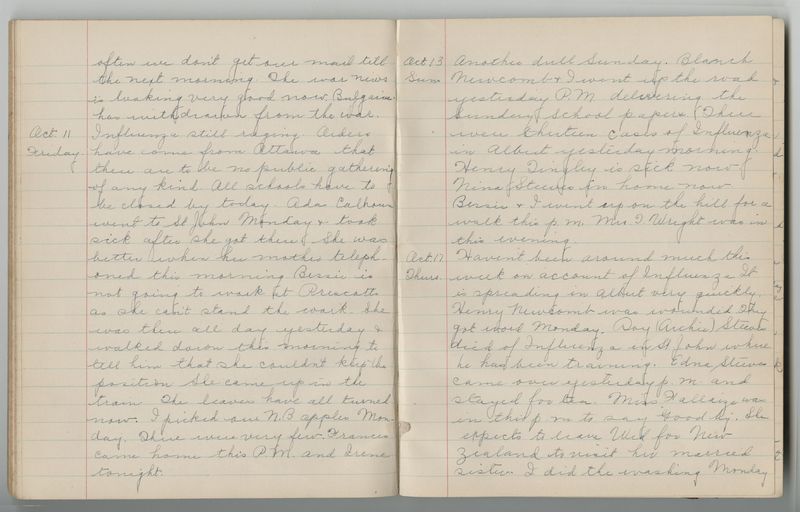 often we don't get our mail till
the next morning. The war news
is looking very good now. Bulgaria
has withdrawn from the war.
Oct 11 Influenza still raging. Orders
Friday have come from Ottawa that
there are to be no public gathering
of any kind. All schools have to
be closed by today. Ada Calhoun
went to St John Monday & took
sick after she got there. She was
better when her mother teleph-
oned this morning. Bessie is
not going to work at Prescotts
as she can't stand the work. She
was there all day yesterday &
walked down this morning to
tell him that she couldn't keep the
position. She came up in the
train. The leaves have all turned
now. I picked our N.B apples Mon-
day. There were very few. Frances
came home this P.M. and Irene
tonight.
Oct 13 Another dull Sunday. Blanch
Sun. Newcomb & I went up the road
yesterday P.M. delivering the
Sunday School papers. (There
were thirteen cases of Influenza
in Albert yesterday morning.
Henry Tingley is sick now)
Nina Steeves in home now.
Bessie & I went up on the hill for a
walk this p.m. Mrs. I Wright was in
this evening.
Oct 17 Havent been around much this
Thurs. week on account of Influenza. It
is spreading in Albert very quickly.
Henry Newcomb was wounded. They
got word Monday. Roy (Archie) Steeves
died of Influenza in St John where
he has been training. Edna Steeves
came over yesterday p.m. and
stayed for tea. Miss was
in this p.m to say Good by. She
expects to leave Wed for New
Zealand to visit her married
sister. I did the washing Monday